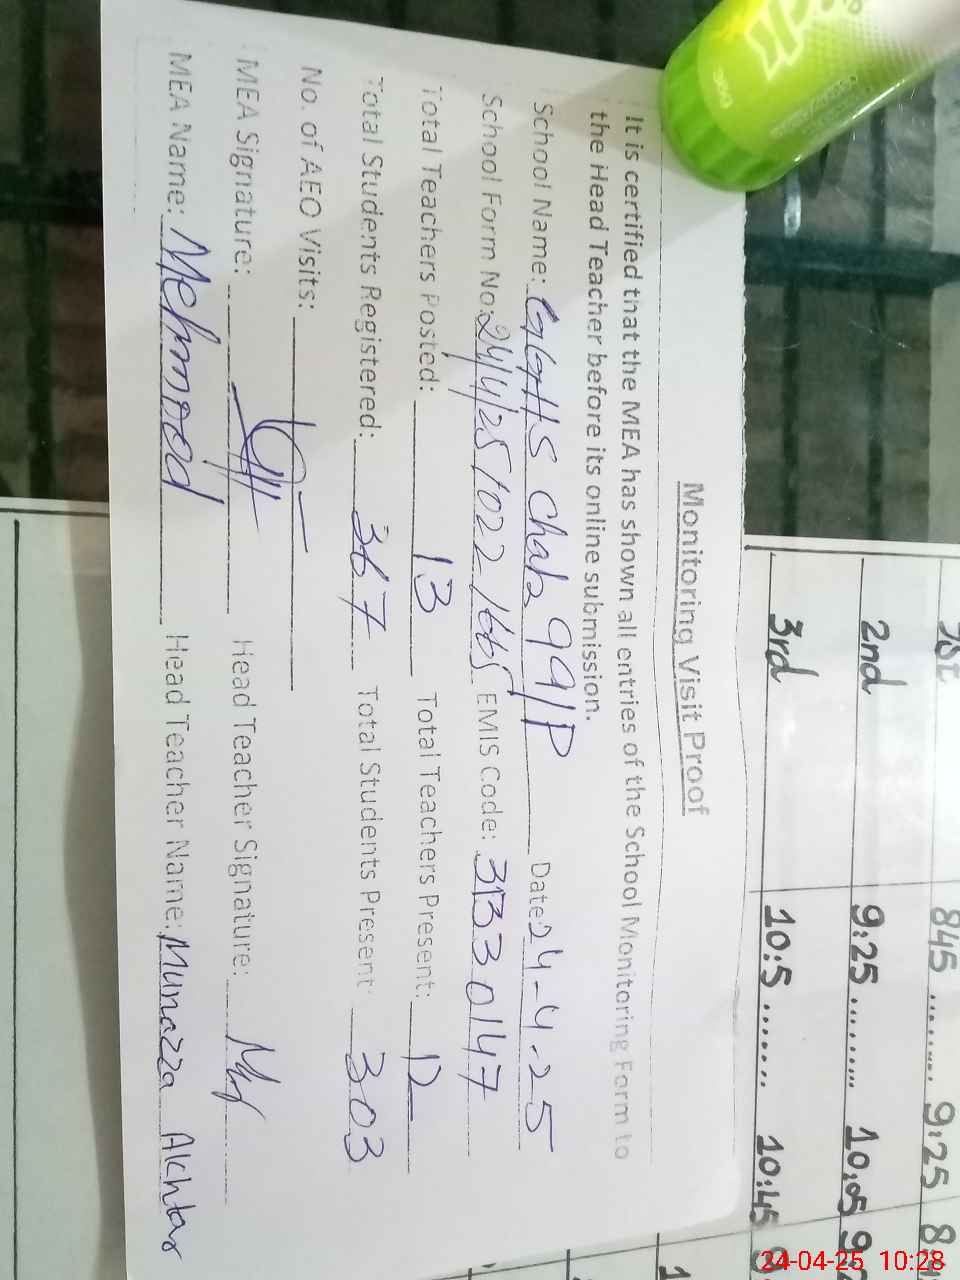 Monitoring Visit Proof
It is certified that the MEA has shown all entries of the School Monitoring Form to
the Head Teacher before its online submission.
School Name: GGHS Chak 99/P Date: 24-4-25
School Form No: 24/4/25/022/665 EMIS Code: 31330147
Total Teachers Posted: 13 Total Teachers Present: 12
Total Students Registered: 367 Total Students Present: 303
No. of AEO Visits:
MEA Signature: Head Teacher Signature:
MEA Name: Mehmood Head Teacher Name: Munazza Akhtar
1st 845 ........ 9:25
2nd 9:25 ......... 10:05
3rd 10:5 ........ 10:45
24-04-25 10:28